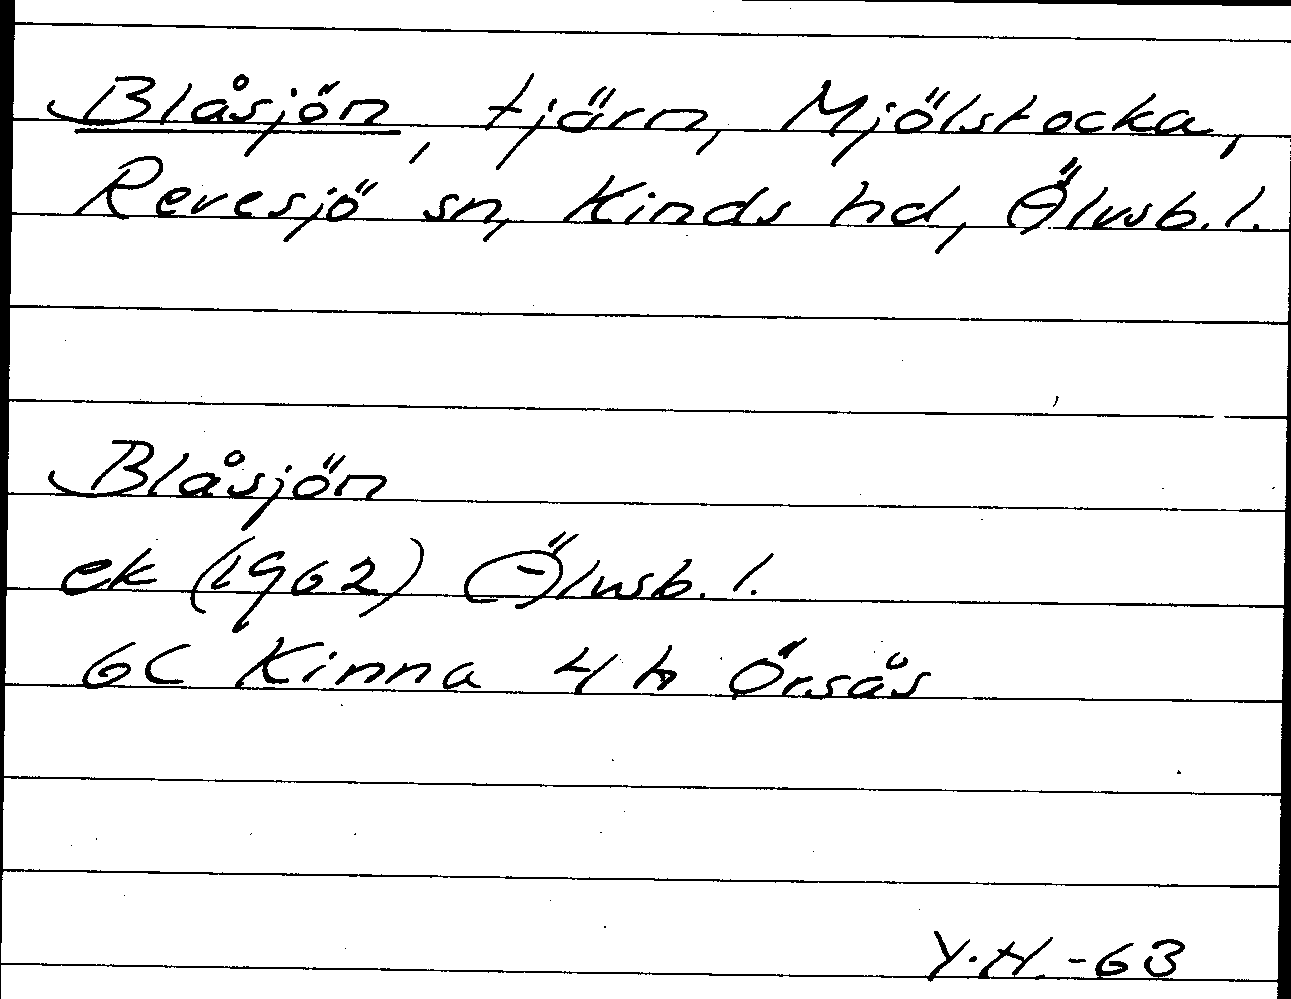 Blåsjön, tjärn, Mjölstocka,
Revesjö sn, Kinds hd, Älvsb. l.
Blåsjön
ek (1962) Älvsb. l.
6C Kinna 4h Örsås
Y.H. -63